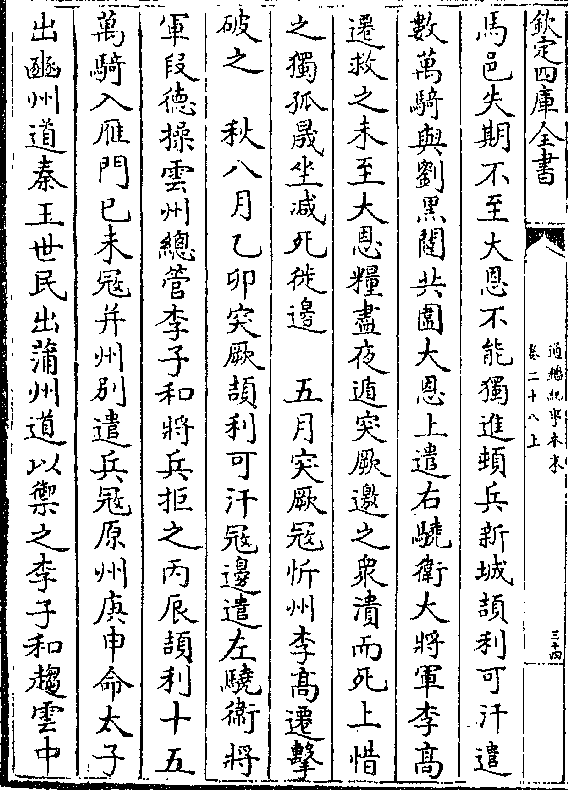 欽定四庫全書
通鑑紀事本末
卷二十八上
三十四
馬邑失期不至大恩不能獨進頓兵新城頡利可汗遣
數萬騎與劉黑闥共圍大恩上遣右驍衛大將軍李高
遷救之未至大恩糧盡夜遁突厥邀之衆潰而死上惜
之獨孤晟坐減死徙邊　五月突厥寇忻州李高遷擊
破之　秋八月乙卯突厥頡利可汗寇邊遣左驍衞將
軍段德操雲州總管李子和將兵拒之丙辰頡利十五
萬騎入雁門己未寇并州别遣兵寇原州庚申命太子
出豳州道秦王世民出蒲州道以禦之李子和趨雲中